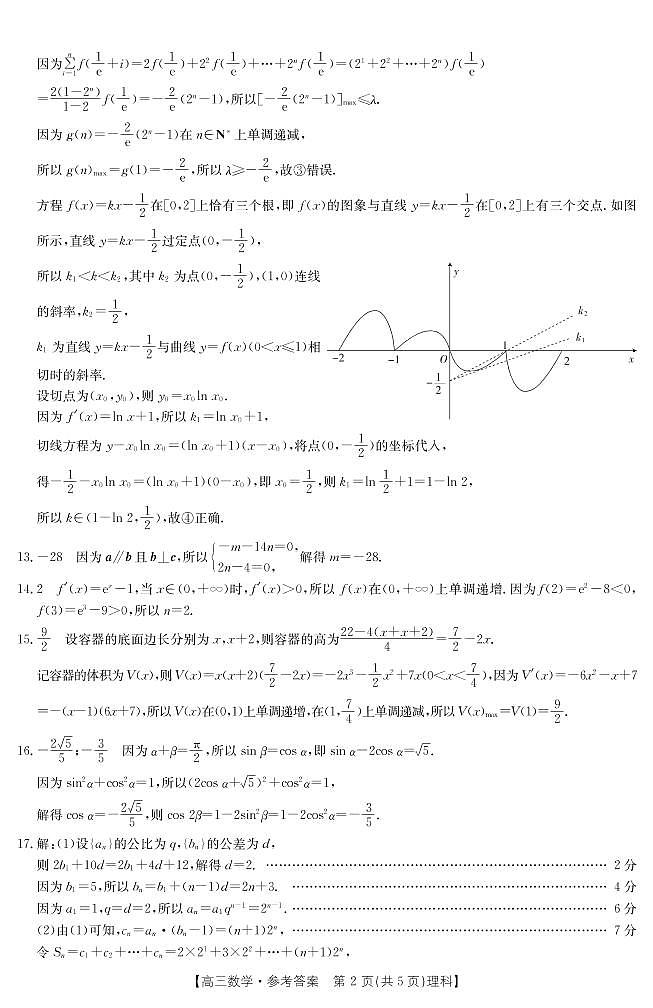 因为∑_{i=1}^{n} f(1/e+i)=2f(1/e)+2² f(1/e)+…+2ⁿ f(1/e)=(2¹+2²+…+2ⁿ)f(1/e)
=2(1-2ⁿ)/(1-2) f(1/e)=-2/e(2ⁿ-1),所以[-2/e(2ⁿ-1)]max≤λ.
因为 g(n)=-2/e(2ⁿ-1)在 n∈N* 上单调递减,
所以 g(n)max=g(1)=-2/e,所以 λ≥-2/e,故③错误.
方程 f(x)=kx-1/2在[0,2]上恰有三个根,即 f(x)的图象与直线 y=kx-1/2在[0,2]上有三个交点. 如图
所示,直线 y=kx-1/2过定点(0,-1/2),
所以 k₁<k<k₂,其中 k₂ 为点(0,-1/2),(1,0)连线
的斜率,k₂=1/2,
k₁ 为直线 y=kx-1/2与曲线 y=f(x)(0<x≤1)相
切时的斜率.
y
k₂
k₁
-2
-1
O
1
2
x
-1/2
设切点为(x₀,y₀),则 y₀=x₀ln x₀.
因为 f′(x)=ln x+1,所以 k₁=ln x₀+1,
切线方程为 y-x₀ln x₀=(ln x₀+1)(x-x₀),将点(0,-1/2)的坐标代入,
得-1/2-x₀ln x₀=(ln x₀+1)(0-x₀),即 x₀=1/2,则 k₁=ln 1/2+1=1-ln 2,
所以 k∈(1-ln 2,1/2),故④正确.
13. -28 因为 a∥b 且 b⊥c,所以{-m-14n=0, 2n-4=0, 解得 m=-28.
14. 2 f′(x)=eˣ-1,当 x∈(0,+∞)时,f′(x)>0,所以 f(x)在(0,+∞)上单调递增. 因为 f(2)=e²-8<0,
f(3)=e³-9>0,所以 n=2.
15. 9/2 设容器的底面边长分别为 x,x+2,则容器的高为(22-4(x+x+2))/4=7/2-2x.
记容器的体积为 V(x),则 V(x)=x(x+2)(7/2-2x)=-2x³-1/2x²+7x(0<x<7/4),因为 V′(x)=-6x²-x+7
=-(x-1)(6x+7),所以 V(x)在(0,1)上单调递增,在(1,7/4)上单调递减,所以 V(x)max=V(1)=9/2.
16. -2√5/5;-3/5 因为 α+β=π/2,所以 sin β=cos α,即 sin α-2cos α=√5.
因为 sin²α+cos²α=1,所以(2cos α+√5)²+cos²α=1,
解得 cos α=-2√5/5,则 cos 2β=1-2sin²β=1-2cos²α=-3/5.
17. 解:(1)设{aₙ}的公比为 q,{bₙ}的公差为 d,
则 2b₁+10d=2b₁+4d+12,解得 d=2. …… 2 分
因为 b₁=5,所以 bₙ=b₁+(n-1)d=2n+3. …… 4 分
因为 a₁=1,q=d=2,所以 aₙ=a₁qⁿ⁻¹=2ⁿ⁻¹. …… 6 分
(2)由(1)可知,cₙ=aₙ·(bₙ-1)=(n+1)2ⁿ, …… 7 分
令 Sₙ=c₁+c₂+…+cₙ=2×2¹+3×2²+…+(n+1)2ⁿ,
【高三数学·参考答案 第 2 页(共 5 页)理科】